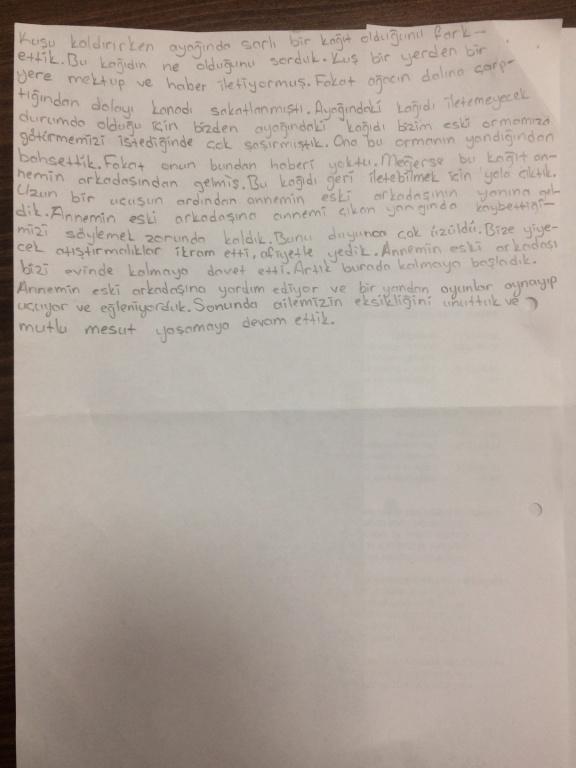 Kuşu kaldırırken ayağında sarlı bir kağıt olduğunu fark-
ettik. Bu kağıdın ne olduğunu sorduk. Kuş bir yerden bir
yere mektup ve haber iletiyormuş. Fakat ağacın dalına çarp-
tığından dolayı kanadı sakatlanmıştı. Ayağındaki kağıdı iletemeyecek
durumda olduğu için bizden ayağındaki kağıdı bizim eski ormanıza
götürmemizi istediğinde çok şaşırmıştık. Ona bu ormanın yandığından
bahsettik. Fakat onun bundan haberi yoktu. Meğerse bu kağıt an-
nemin arkadaşından gelmiş. Bu kağıdı geri iletebilmek için yola çıktık.
Uzun bir uçuşun ardından annemin eski arkadaşının yanına gel-
dik. Annemin eski arkadaşına annemi çıkan yangında kaybettiği-
mizi söylemek zorunda kaldık. Bunu duyunca çok üzüldü. Bize yiye-
cek atıştırmalıklar ikram etti, afiyetle yedik. Annemin eski arkadaşı
bizi evinde kalmaya davet etti. Artık burada kalmaya başladık.
Annemin eski arkadaşına yardım ediyor ve bir yandan oyunlar oynayıp
uçuyor ve eğleniyorduk. Sonunda ailemizin eksikliğini unuttuk ve
mutlu mesut yaşamaya devam ettik.